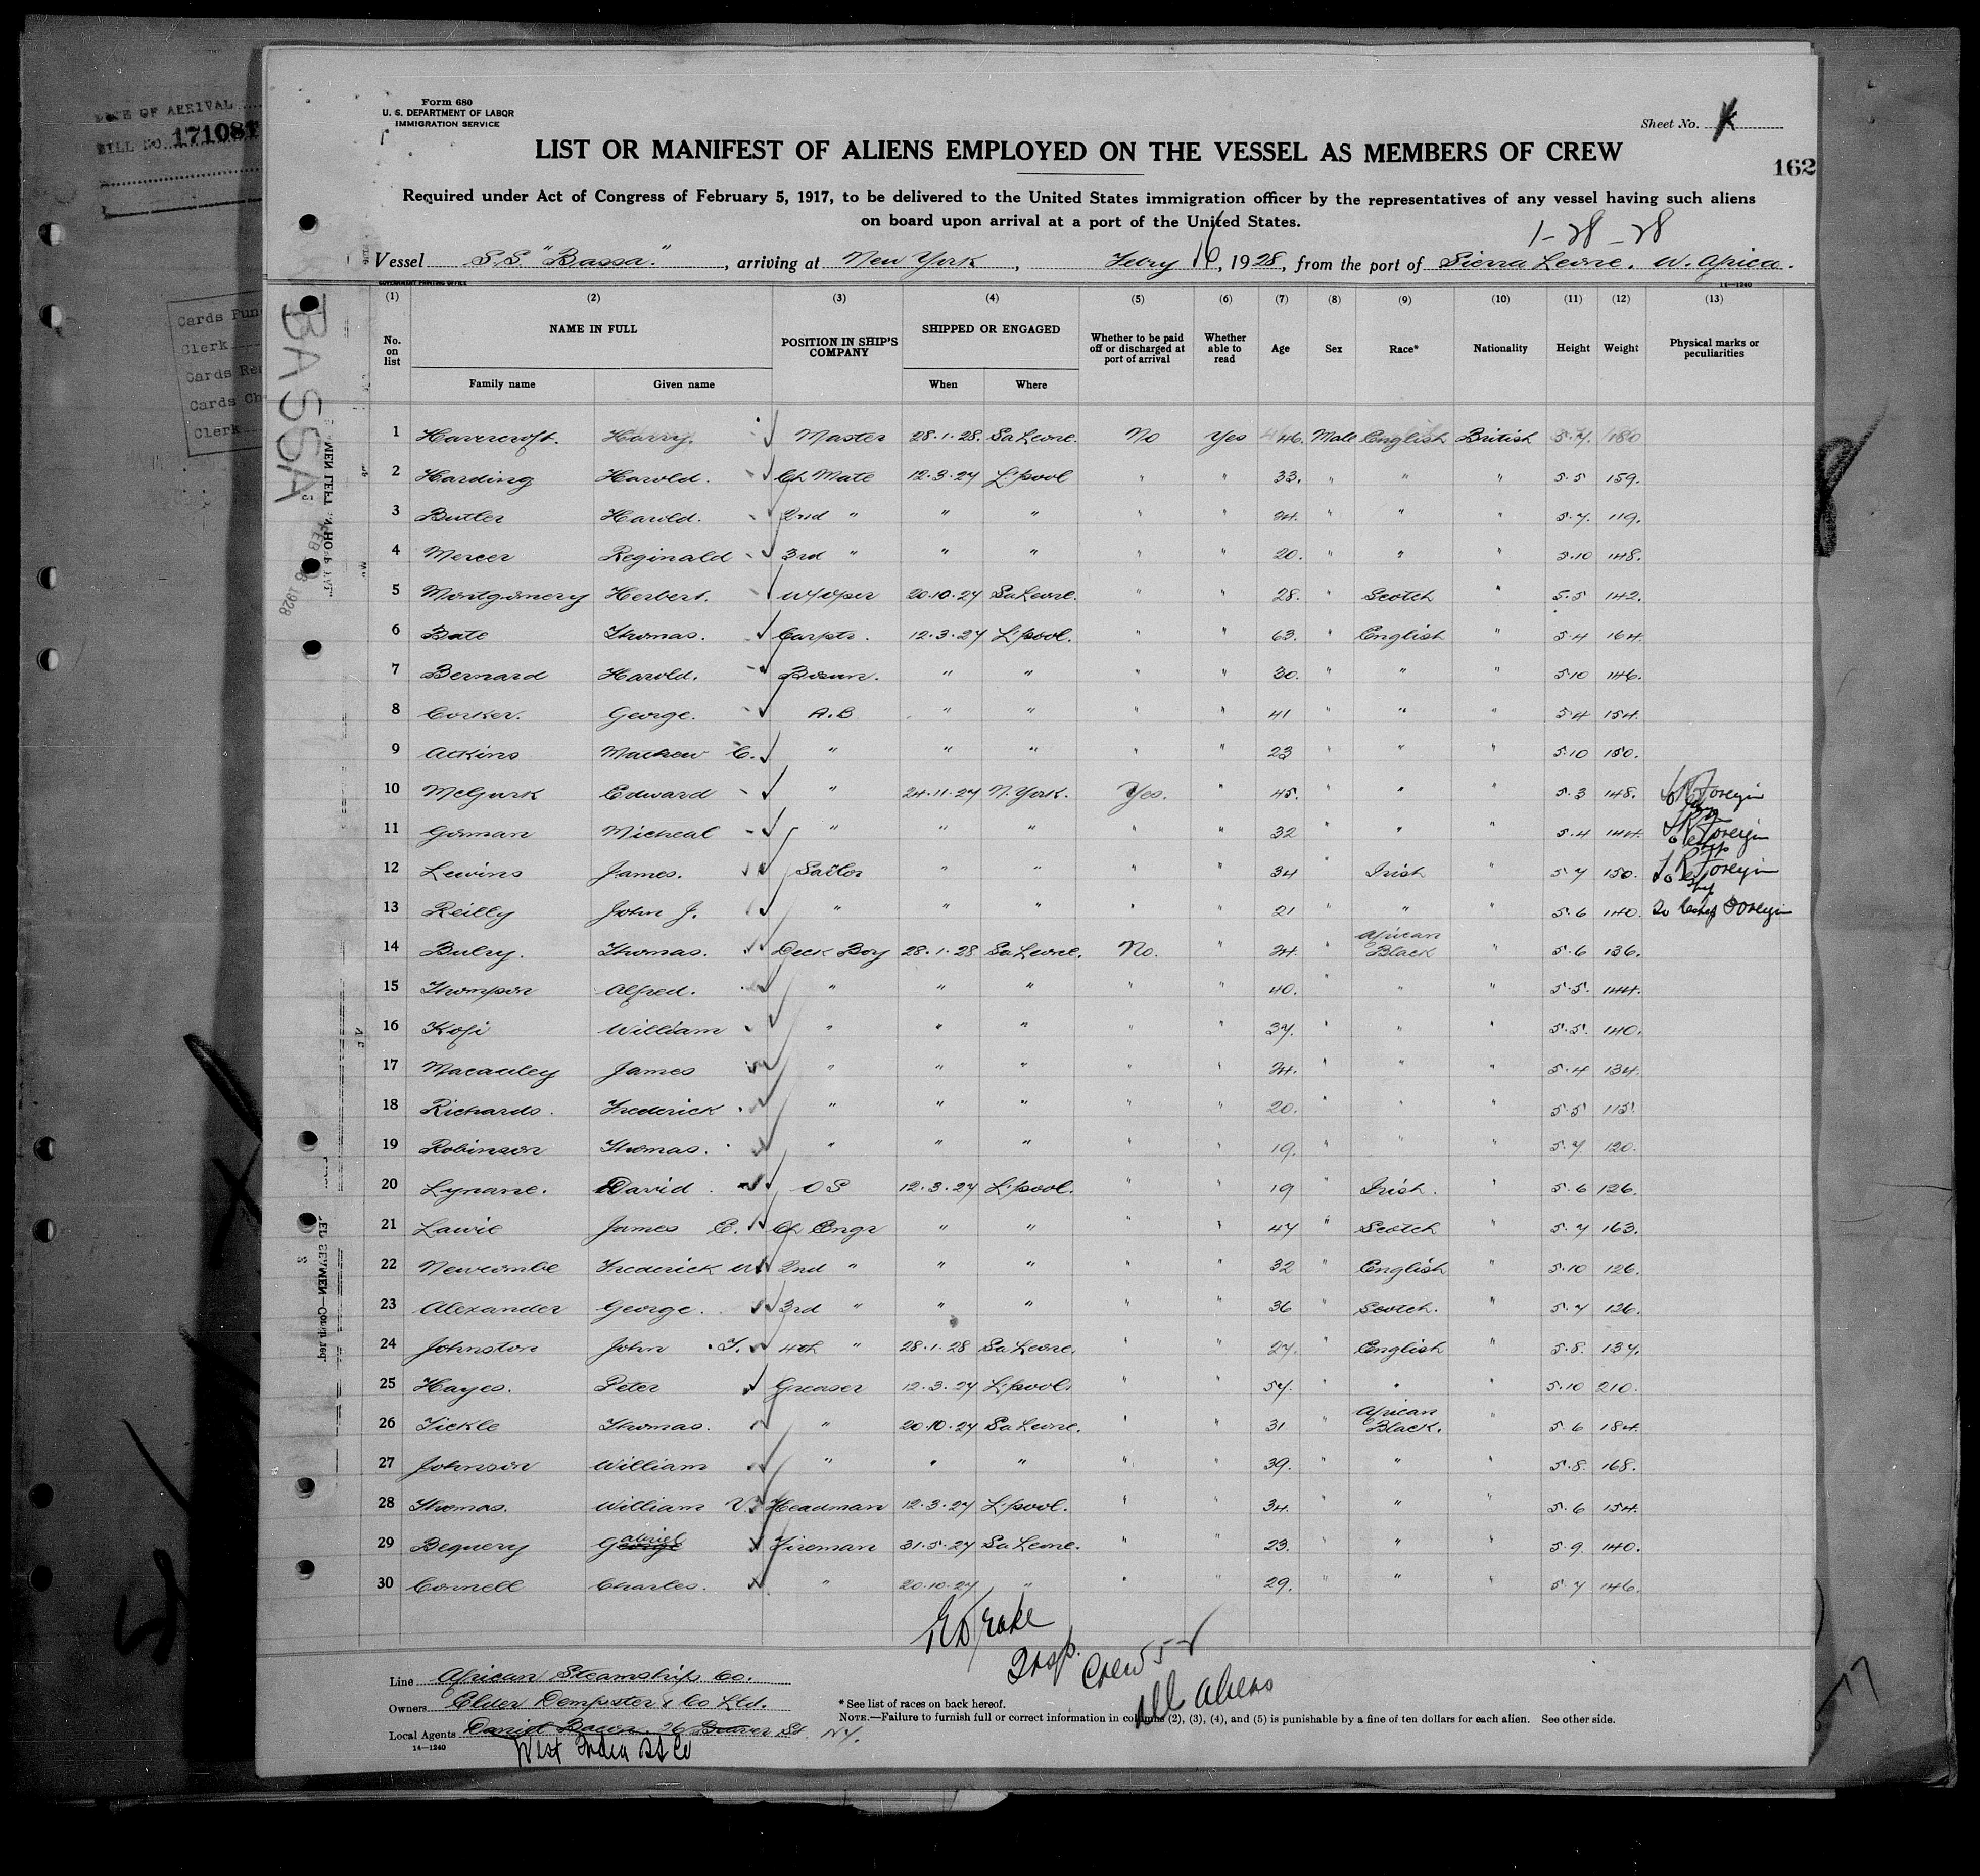 DATE OF ARRIVAL
BILL NO. 171081
Form 680
U. S. DEPARTMENT OF LABOR
IMMIGRATION SERVICE
Sheet No.
LIST OR MANIFEST OF ALIENS EMPLOYED ON THE VESSEL AS MEMBERS OF CREW
162
Required under Act of Congress of February 5, 1917, to be delivered to the United States immigration officer by the representatives of any vessel having such aliens
on board upon arrival at a port of the United States.
1-28-28
Vessel S.S. "Bassa." , arriving at New York , Febry 16, 1928, from the port of Sierra Leone. W. Africa.
GOVERNMENT PRINTING OFFICE
14—1240
BASSA
Cards Pun
Clerk
Cards Re
Cards Ch
Clerk
FEB 1928
(1) (2) (3) (4) (5) (6) (7) (8) (9) (10) (11) (12) (13)
No. on list NAME IN FULL Family name Given name POSITION IN SHIP'S COMPANY SHIPPED OR ENGAGED When Where Whether to be paid off or discharged at port of arrival Whether able to read Age Sex Race* Nationality Height Weight Physical marks or peculiarities
1 Havercroft. Harry. Master 28.1.28. Sa Leone. No Yes 46. Male English British 5.7. 180
2 Harding Harold. Ch Mate 12.3.27 L'pool " " 33. " " " 5.5 159.
3 Butler Harold. 2nd " " " " " 24. " " " 5.7. 119.
4 Mercer Reginald 3rd " " " " " 20. " " " 5.10 148.
5 Montgomery Herbert. W/oper 20.10.27 Sa Leone. " " 28. " Scotch " 5.5 142.
6 Bate Thomas. Carptr. 12.3.27 L'pool. " " 63. " English " 5.4 164.
7 Bernard Harold. Bosun. " " " " 30. " " " 5.10 146.
8 Corker. George. A.B " " " " 41 " " " 5.4 154.
9 Atkins Mathew C. " " " " " 23 " " " 5.10 150.
10 McGurk Edward " 24.11.27 N. York. Yes. " 45. " " " 5.3 148. To Reship Foreign
11 Gorman Micheal " " " " " 32 " " " 5.4 144. To Reship Foreign
12 Lewins James. Sailor " " " 34 " Irish " 5.7 150. To Reship Foreign
13 Reilly John J. " " " " " 21 " " " 5.6 140. To Reship Foreign
14 Bulry. Thomas. Deck Boy 28.1.28 Sa Leone. No. " 24. " African Black " 5.6 136.
15 Thompson Alfred. " " " " " 40. " " " 5.5. 144.
16 Kofi William " " " " " 37. " " " 5.5. 140.
17 Macauley James " " " " " 24. " " " 5.4 134.
18 Richards. Frederick " " " " " 20. " " " 5.5 115.
19 Robinson Thomas. " " " " " 19. " " " 5.7. 120.
20 Lynane. David. OS 12.3.27 L'pool. " " 19 " Irish. " 5.6 126.
21 Lawie James E. Ch Engr " " " " 47 " Scotch " 5.7 163.
22 Newcombe Frederick W 2nd " " " " " 32 " English " 5.10 126.
23 Alexander George. 3rd " " " " " 36 " Scotch. " 5.7 126.
24 Johnston John T. 4th " 28.1.28 Sa Leone. " " 27. " English " 5.8. 137.
25 Hayes. Peter Greaser 12.3.27 L'pool. " " 57. " " " 5.10 210.
26 Tickle Thomas. " 20.10.27 Sa Leone. " " 31 " African Black. " 5.6 184.
27 Johnson William " " " " " 39. " " " 5.8. 168.
28 Thomas. William V. Headman 12.3.27 L'pool. " " 34. " " " 5.6 154.
29 Bequery George Gabriel Fireman 31.5.27 Sa Leone. " " 23. " " " 5.9. 140.
30 Connell Charles. " 20.10.27 " " " 29. " " " 5.7 146.
Drake
Insp. Crew 52
All Aliens
Line African Steamships Co.
Owners Elder Dempster & Co Ltd.
Local Agents Daniel Bacon. 26 Beaver St. N.Y.
West India SS Co
14—1240
* See list of races on back hereof.
NOTE.—Failure to furnish full or correct information in columns (2), (3), (4), and (5) is punishable by a fine of ten dollars for each alien. See other side.